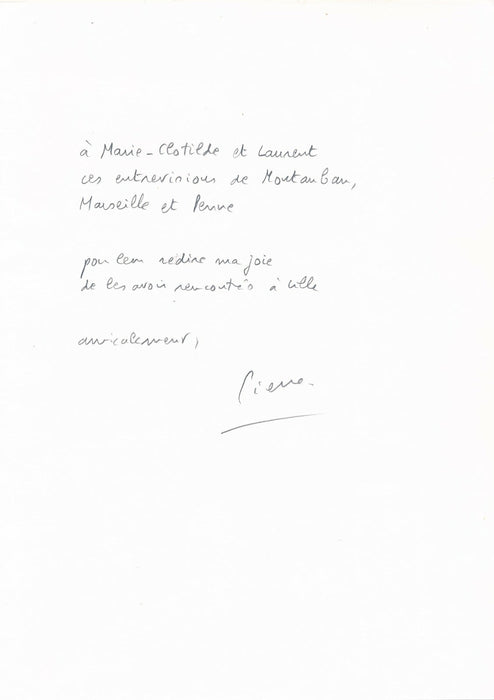 à Marie-Clotilde et Laurent
ces entrevisions de Montauban,
Marseille et Penne
pour leur redire ma joie
de les avoir rencontrés à Lille
amicalement,
Pierre.